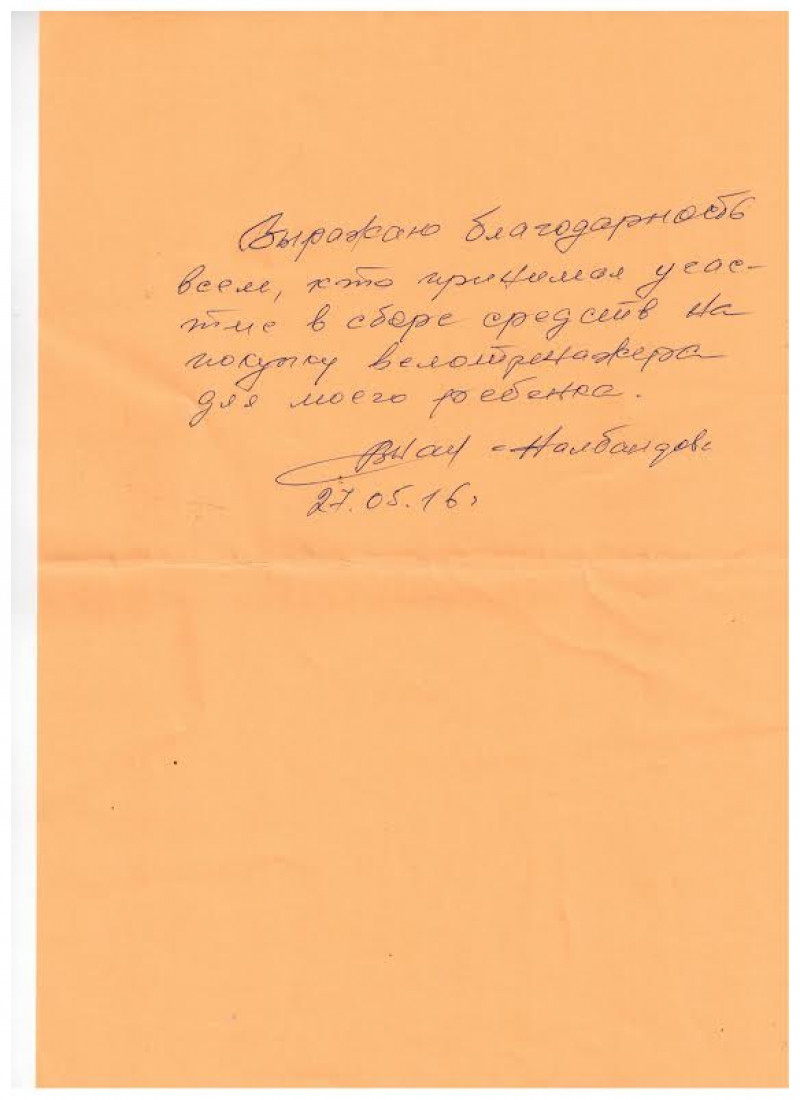 Выражаю благодарность
всем, кто принимал учас-
тие в сборе средств на
покупку велотренажера
для моего ребенка.
Налбандов
27.05.16г